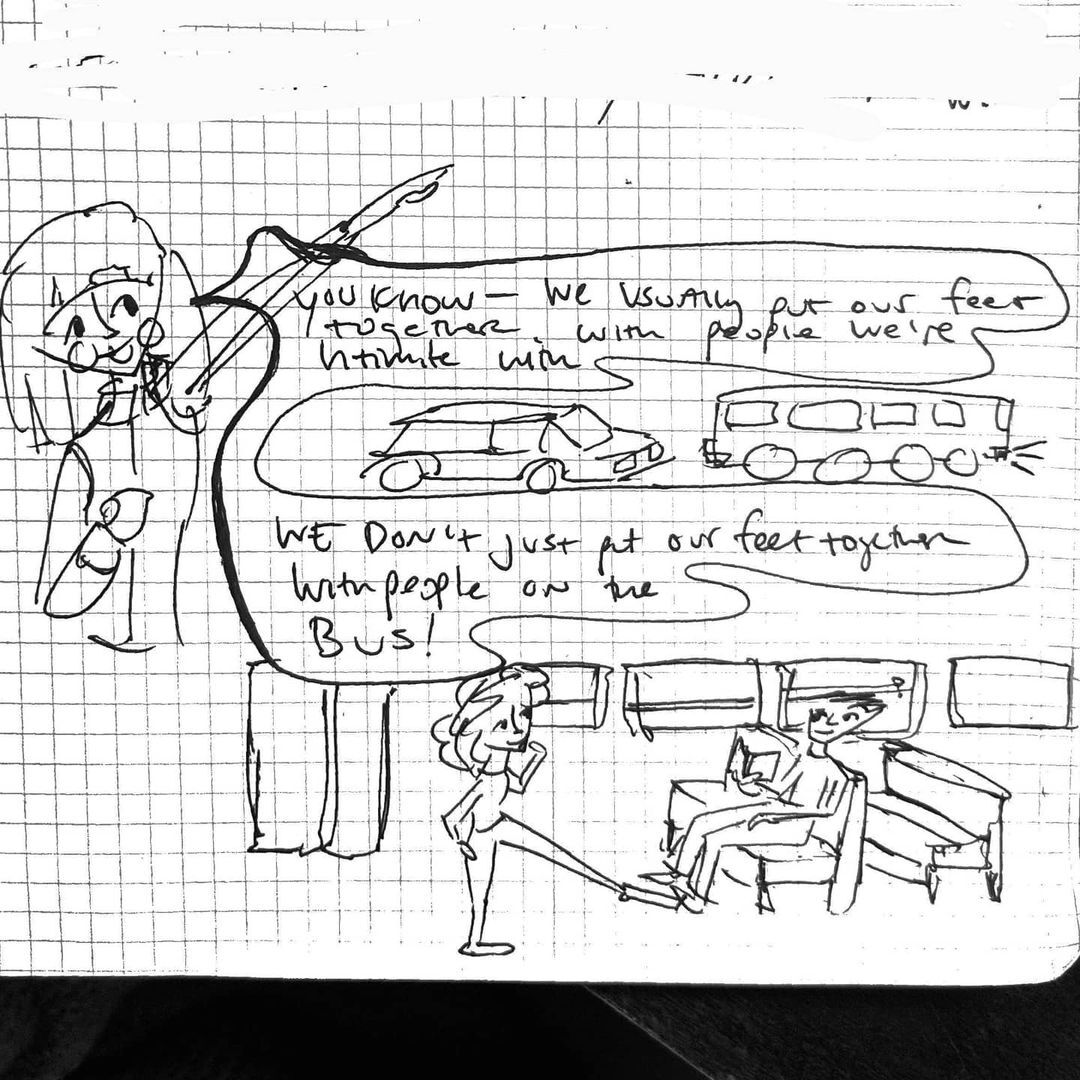 YOU KNOW — WE USUALLY put our feet
together with people we're
Intimite with
WE DON't just put our feet together
With people on the
BUS!